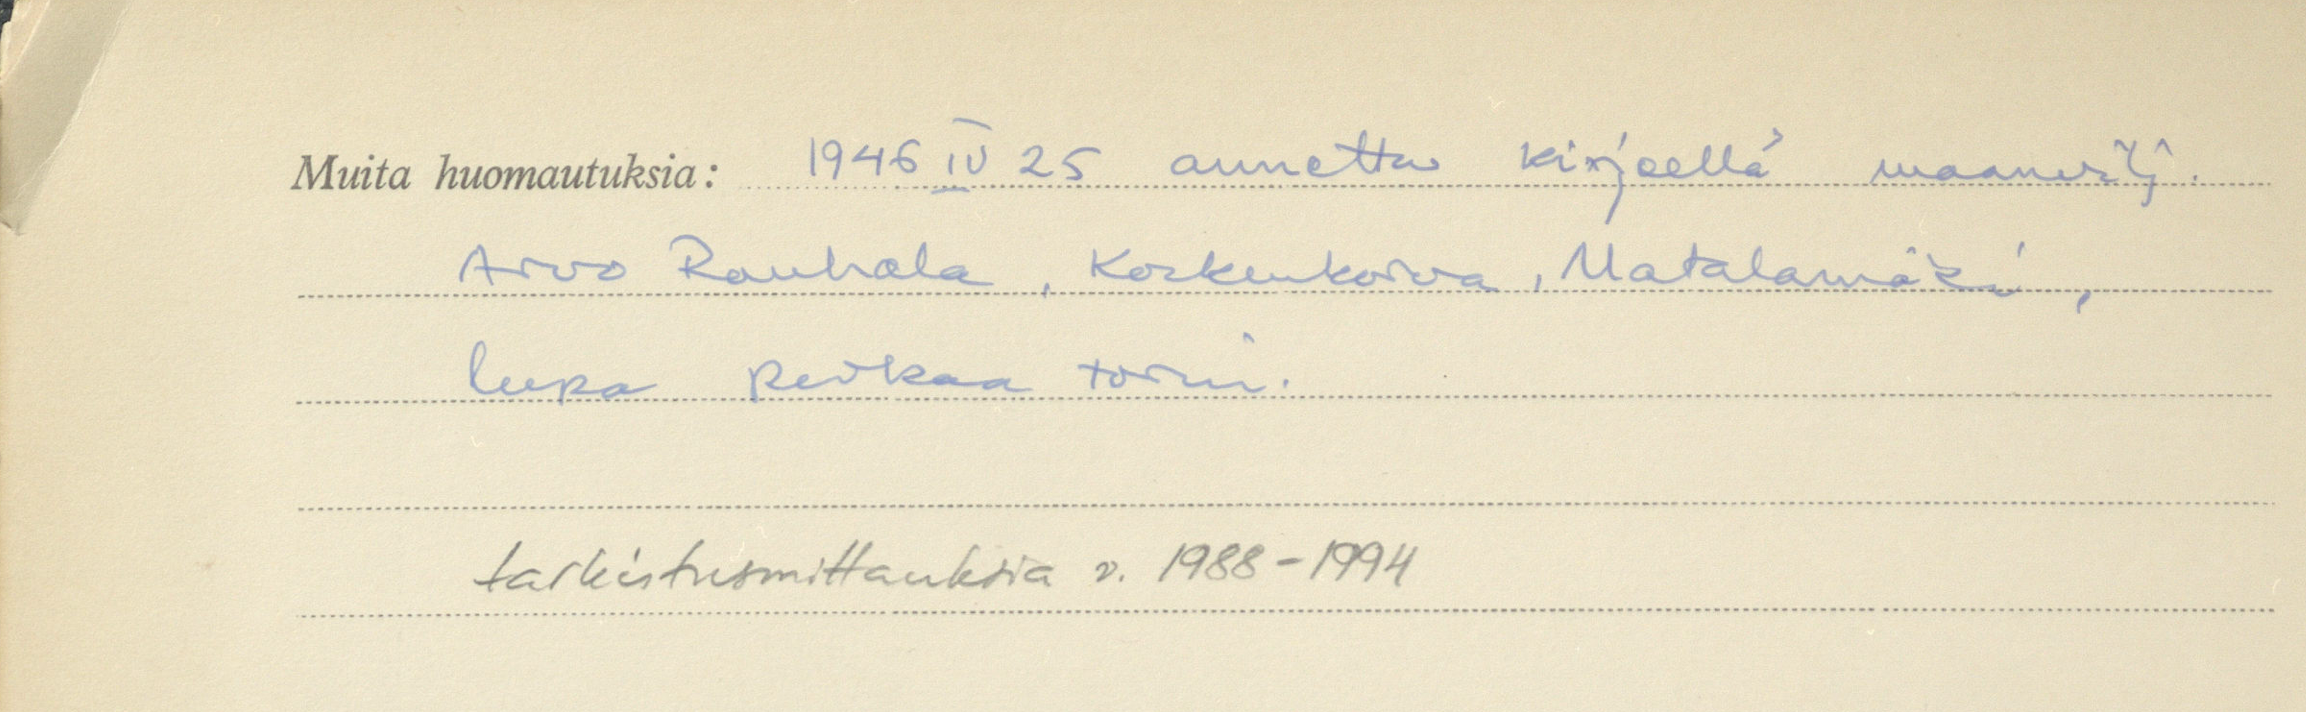 Muita huomautuksia: 1946 IV 25 annettu kirjeellä maanvilj.
Arvo Rauhala, Koskenkorva, Matalamäki,
lupa purkaa torni.
tarkistusmittauksia v. 1988-1994